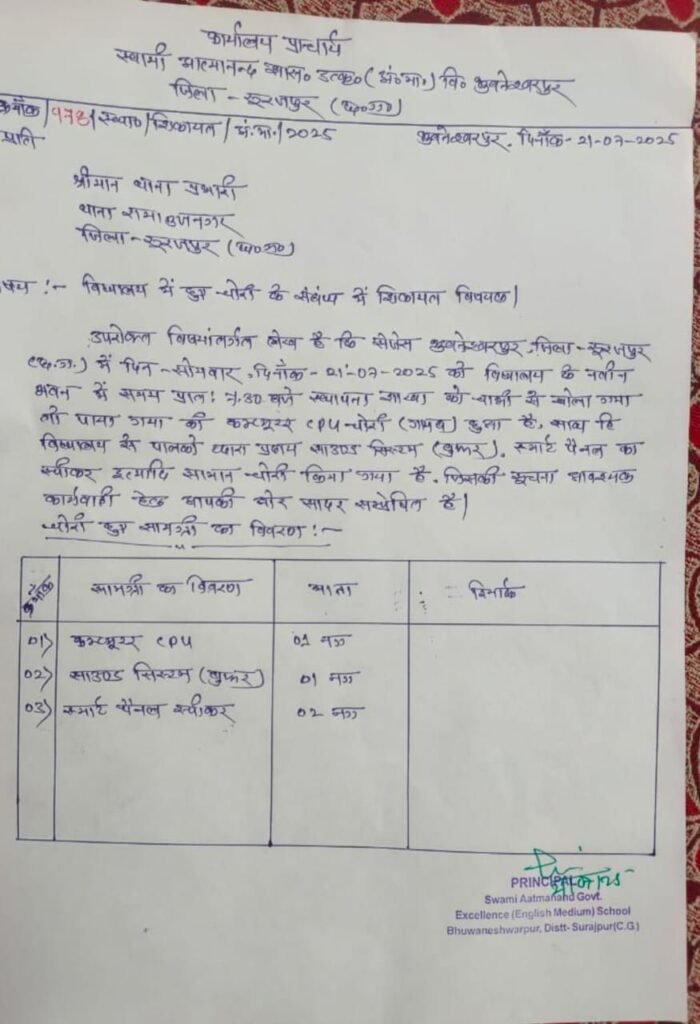 कार्यालय प्राचार्य
स्वामी आत्मानन्द शास० उत्कृ० (अं०मा०) वि० भुवनेश्वरपुर
जिला - सूरजपुर (छ०ग०)
क्रमाँक / 178 / स्था० / शिकायत / अं.मा. / 2025 भुवनेश्वरपुर, दिनाँक - 21-07-2025
प्रति
श्रीमान थाना प्रभारी
थाना रामानुजनगर
जिला - सूरजपुर (छ०ग०)
विषय :- विद्यालय में हुए चोरी के संबंध में शिकायत विषयक।
उपरोक्त विषयांतर्गत लेख है कि सेजेस भुवनेश्वरपुर, जिला - सूरजपुर
(छ.ग.) में दिन - सोमवार, दिनाँक - 21-07-2025 को विद्यालय के नवीन
भवन में समय प्रातः 7.30 बजे स्थापना शाखा को चाभी से खोला गया
तो पाया गया की कम्प्यूटर CPU चोरी (गायब) हुआ है, साथ हि
विद्यालय के पालको द्वारा प्रदाय साउण्ड सिस्टम (वुफर), स्मार्ट पैनल का
स्पीकर इत्यादि सामान चोरी किया गया है, जिसकी सूचना आवश्यक
कार्यवाही हेतु आपकी ओर सादर सम्प्रेषित है।
चोरी हुए सामग्री का विवरण :-
क्रमाँक सामग्री का विवरण मात्रा रिमार्क
01) कम्प्यूटर CPU 01 नग
02) साउण्ड सिस्टम (वुफर) 01 नग
03) स्मार्ट पैनल स्पीकर 02 नग
PRINCIPAL
Swami Aatmanand Govt.
Excellence (English Medium) School
Bhuwaneshwarpur, Distt- Surajpur(C.G.)